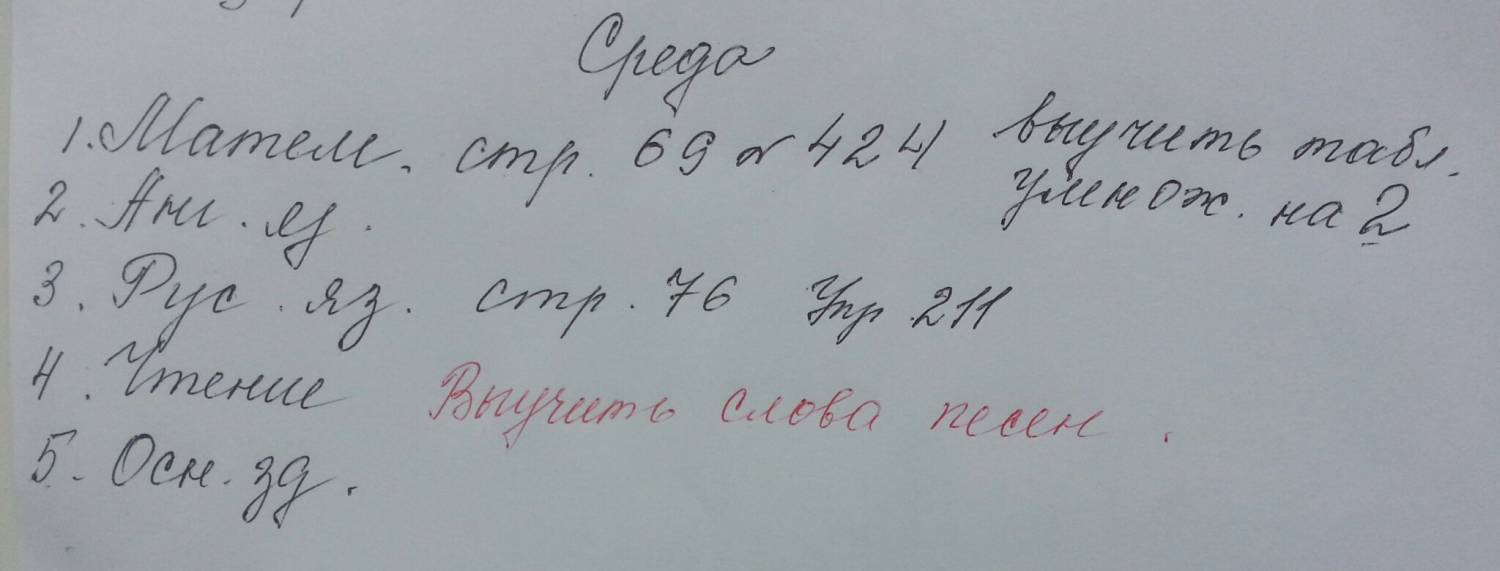 Среда
1. Матем. стр. 69 № 424 выучить табл.
умнож. на 2
2. Анг. яз.
3. Рус. яз. стр. 76 Упр. 211
4. Чтение Выучить слова песен.
5. Осн. зд.